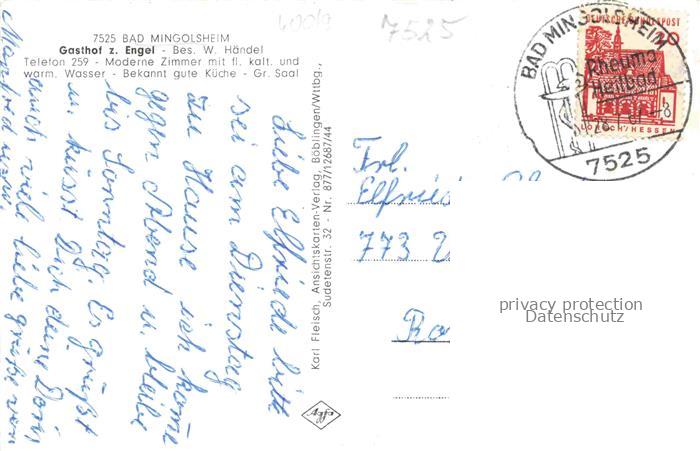 400/9
7525
7525 BAD MINGOLSHEIM
Gasthof z. Engel - Bes. W. Händel
Telefon 259 - Moderne Zimmer mit fl. kalt. und
warm. Wasser - Bekannt gute Küche - Gr. Saal
Liebe Elfriede bitte
sei am Dienstag
zu Hause ich komme
gegen Abend u. bleibe
bis Sonntag. Es grüßt
u. küsst Dich deine
auch viel liebe Grüße von
Karl Fleisch, Ansichtskarten-Verlag, Böblingen/Wttbg.,
Sudetenstr. 32 - Nr. 877/12687/44
Agfa
DEUTSCHE BUNDESPOST
20
LORSCH/HESSEN
BAD MINGOLSHEIM
Rheuma
Heilbad
7525
Frl.
773
privacy protection
Datenschutz